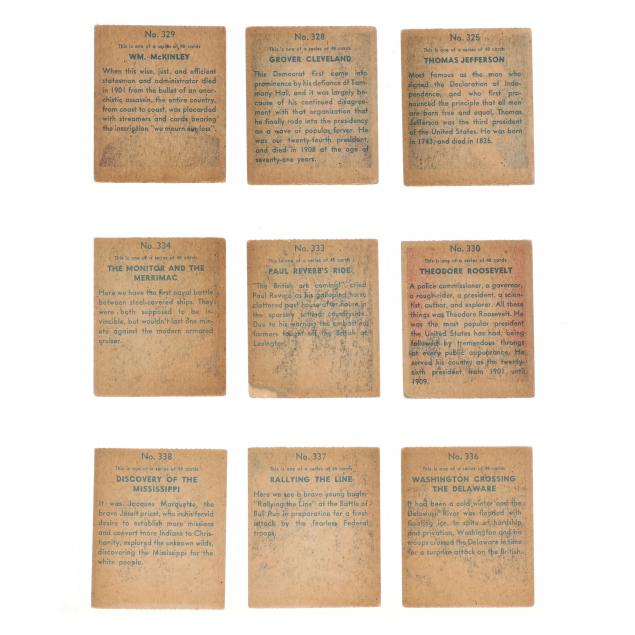 No. 329
This is one of a series of 48 cards
WM. McKINLEY
When this wise, just, and efficient
statesman and administrator died
in 1901 from the bullet of an anar-
chistic assassin, the entire country,
from coast to coast, was placarded
with streamers and cards bearing
the inscription "we mourn our loss".
No. 328
This is one of a series of 48 cards
GROVER CLEVELAND
This Democrat first came into
prominence by his defiance of Tam-
many Hall, and it was largely be-
cause of his continued disagree-
ment with that organization that
he finally rode into the presidency
on a wave of popular fervor. He
was our twenty-fourth president,
and died in 1908 at the age of
seventy-one years.
No. 325
This is one of a series of 48 cards
THOMAS JEFFERSON
Most famous as the man who
signed the Declaration of Inde-
pendence, and who first pro-
nounced the principle that all men
are born free and equal, Thomas
Jefferson was the third president
of the United States. He was born
in 1743, and died in 1826.
No. 334
This is one of a series of 48 cards
THE MONITOR AND THE
MERRIMAC
Here we have the first naval battle
between steel-covered ships. They
were both supposed to be in-
vincible, but wouldn't last one min-
ute against the modern armored
cruiser.
No. 333
This is one of a series of 48 cards
PAUL REVERE'S RIDE
"The British are coming!" cried
Paul Revere as his galloping horse
clattered past house after house in
the sparsely settled countryside.
Due to his warning the embattled
farmers fought off the British at
Lexington.
No. 330
This is one of a series of 48 cards
THEODORE ROOSEVELT
A police commissioner, a governor,
a rough-rider, a president, a scien-
tist, author, and explorer. All these
things was Theodore Roosevelt. He
was the most popular president
the United States has had, being
followed by tremendous throngs
at every public appearance. He
served his country as the twenty-
sixth president from 1901 until
1909.
No. 338
This is one of a series of 48 cards
DISCOVERY OF THE
MISSISSIPPI
It was Jacques Marquette, the
brave Jesuit priest, who in his fervid
desire to establish more missions
and convert more Indians to Chris-
tianity, explored the unknown wilds,
discovering the Mississippi for the
white people.
No. 337
This is one of a series of 48 cards
RALLYING THE LINE
Here we see a brave young bugler
"Rallying the Line" at the Battle of
Bull Run in preparation for a fresh
attack by the fearless Federal
troops.
No. 336
This is one of a series of 48 cards
WASHINGTON CROSSING
THE DELAWARE
It had been a cold winter and the
Delaware River was flooded with
floating ice. In spite of hardship,
and privation, Washington and his
troops crossed the Delaware in time
for a surprise attack on the British.